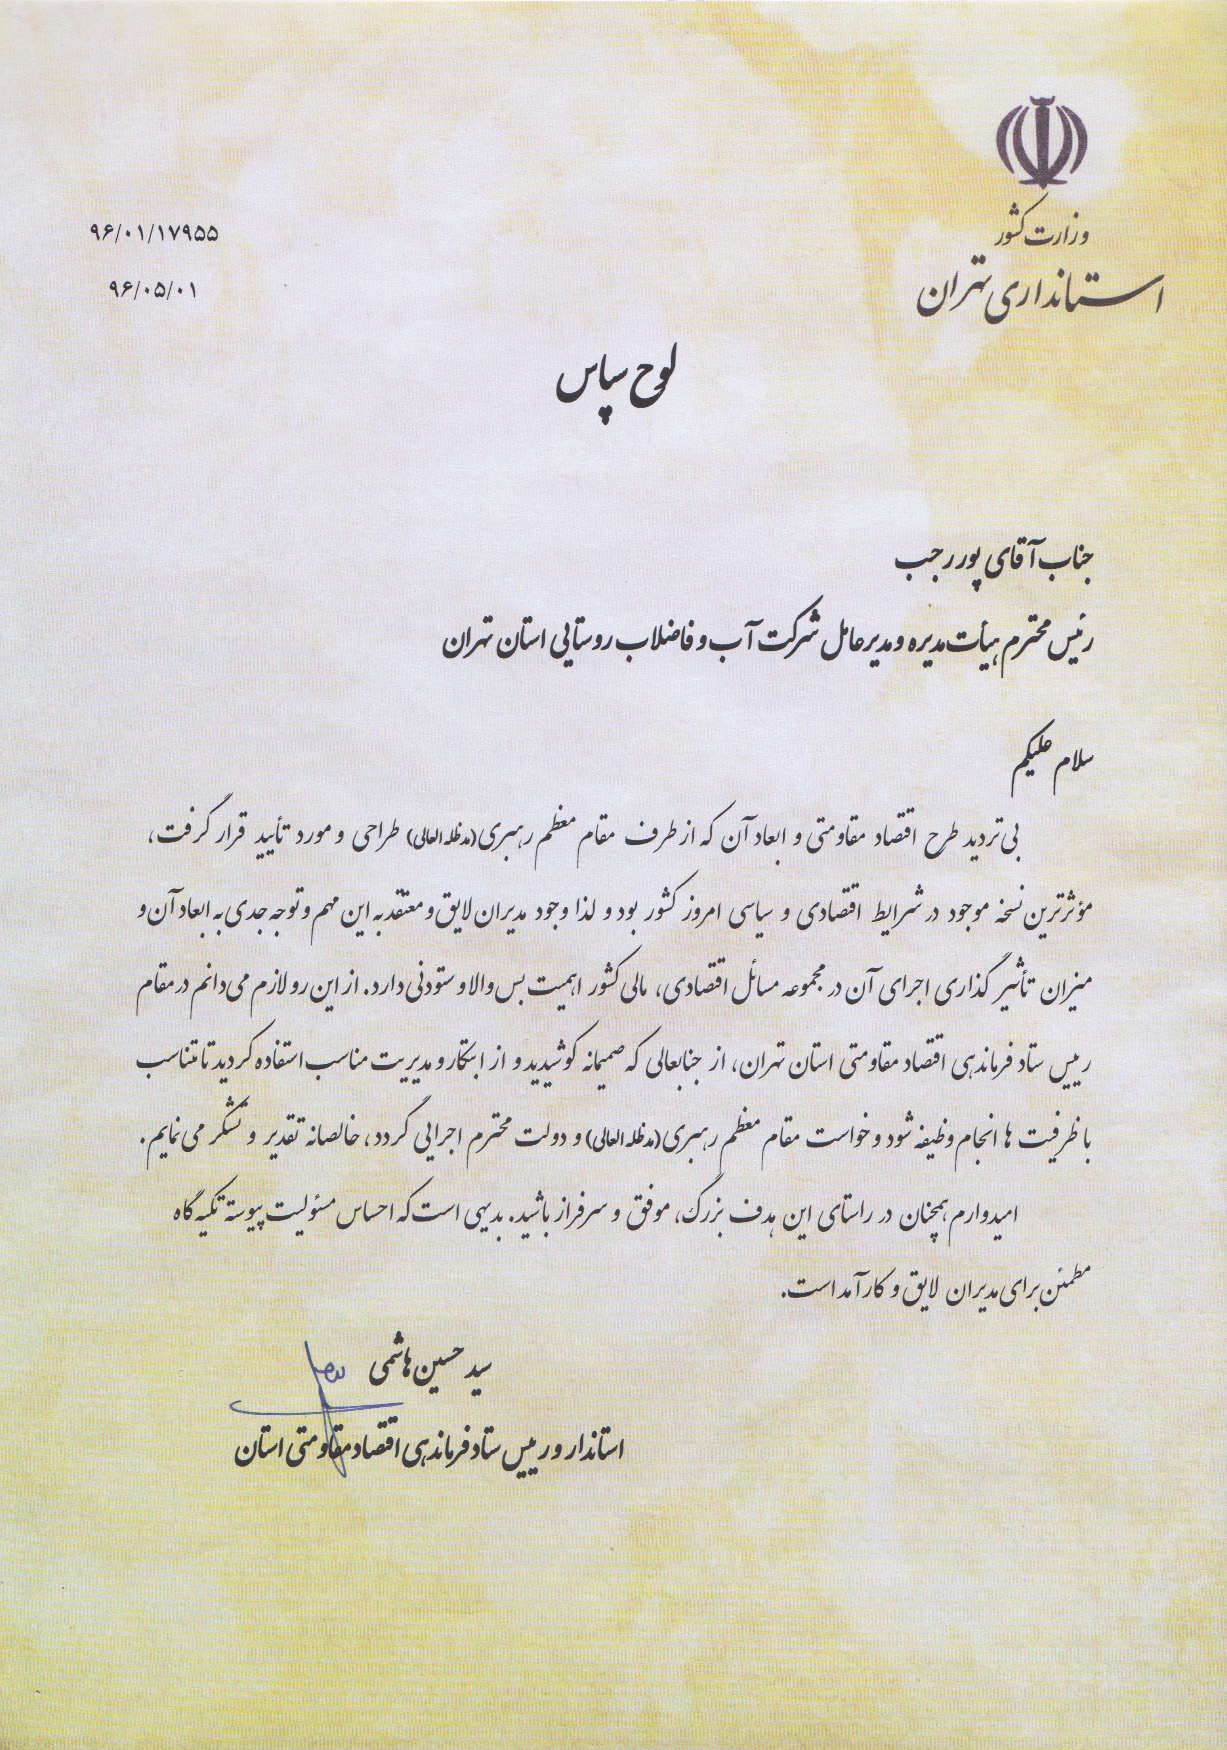 وزارت کشور
استانداری تهران
۹۶/۰۱/۱۷۹۵۵
۹۶/۰۵/۰۱
لوح سپاس
جناب آقای پوررجب
رئیس محترم هیأت مدیره و مدیرعامل شرکت آب و فاضلاب روستایی استان تهران
سلام علیکم
بی تردید طرح اقتصاد مقاومتی و ابعاد آن که از طرف مقام معظم رهبری(مدظله العالی) طراحی و مورد تأیید قرار گرفت،
مؤثرترین نسخه موجود در شرایط اقتصادی و سیاسی امروز کشور بود و لذا وجود مدیران لایق و معتقد به این مهم و توجه جدی به ابعاد آن و
میزان تأثیر گذاری اجرای آن در مجموعه مسائل اقتصادی، مالی کشور اهمیت بس والا و ستودنی دارد. از این رو لازم می‌دانم در مقام
رییس ستاد فرماندهی اقتصاد مقاومتی استان تهران، از جنابعالی که صمیمانه کوشیدید و از ابتکار و مدیریت مناسب استفاده کردید تا متناسب
با ظرفیت ها انجام وظیفه شود و خواست مقام معظم رهبری(مدظله العالی) و دولت محترم اجرایی گردد، خالصانه تقدیر و تشکر می نمایم.
امیدوارم همچنان در راستای این هدف بزرگ، موفق و سرفراز باشید. بدیهی است که احساس مسئولیت پیوسته تکیه گاه
مطمئن برای مدیران لایق و کارآمد است.
سید حسین هاشمی
استاندار و رییس ستاد فرماندهی اقتصاد مقاومتی استان